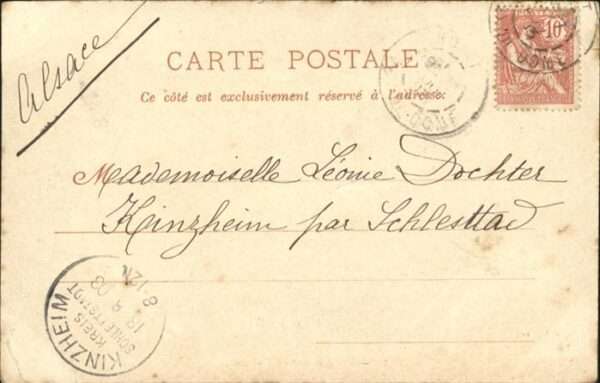 Alsace
CARTE POSTALE
Ce côté est exclusivement réservé à l'adresse.
10
Mademoiselle Léonie Dochter
Kinzheim par Schlesttad
KINZHEIM
KREIS
SCHLETTSTADT
8 03
8 12N